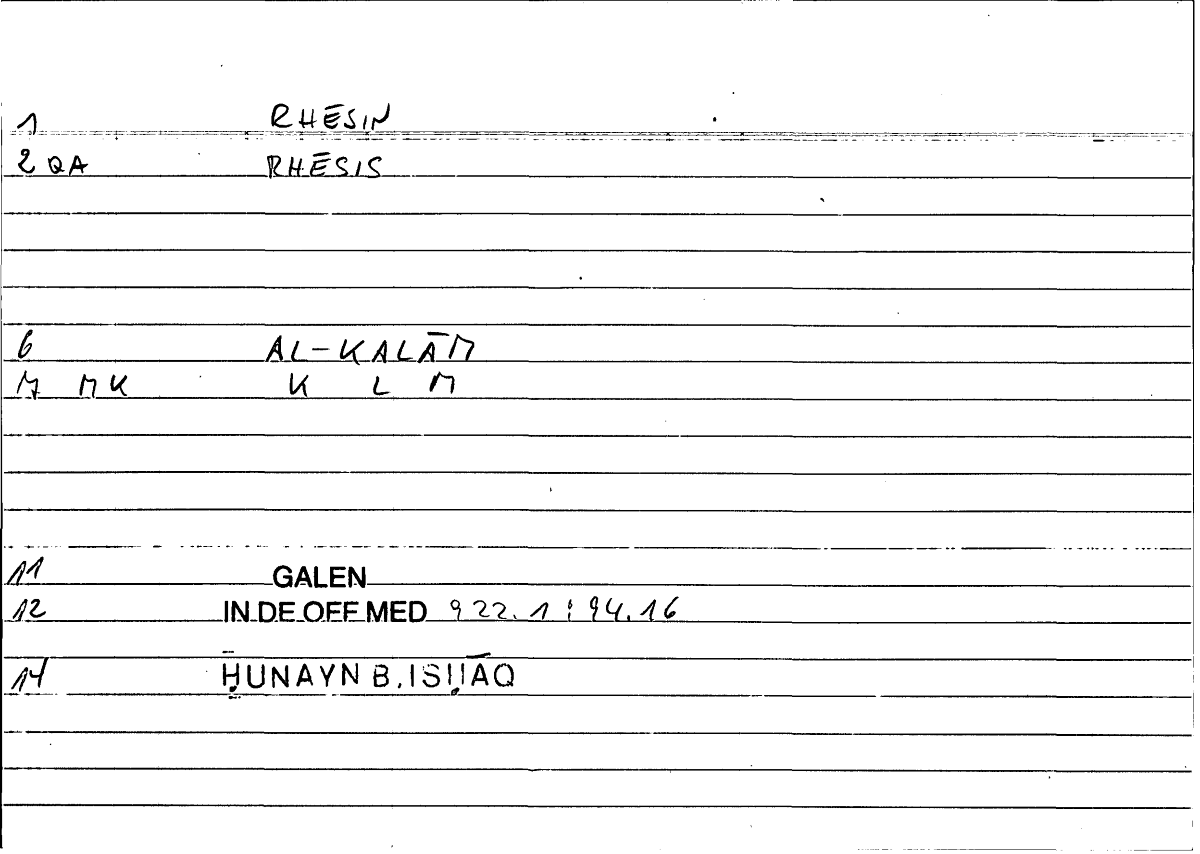 1 RHĒSIN
2 QA RHĒSIS
6 AL-KALĀM
M MK K L M
11 GALEN
12 IN DE OFF MED 922.1 : 94.16
14 ḤUNAYN B. ISḤĀQ